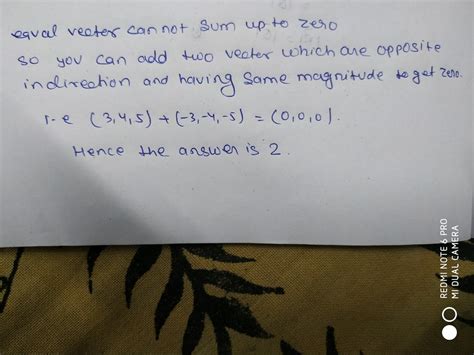 equal vecter cannot sum up to zero
so you can add two vecter which are opposite
in direction and having same magnitude to get zero.
i.e (3,4,5) + (-3,-4,-5) = (0,0,0).
Hence the answer is 2.
REDMI NOTE 6 PRO
MI DUAL CAMERA